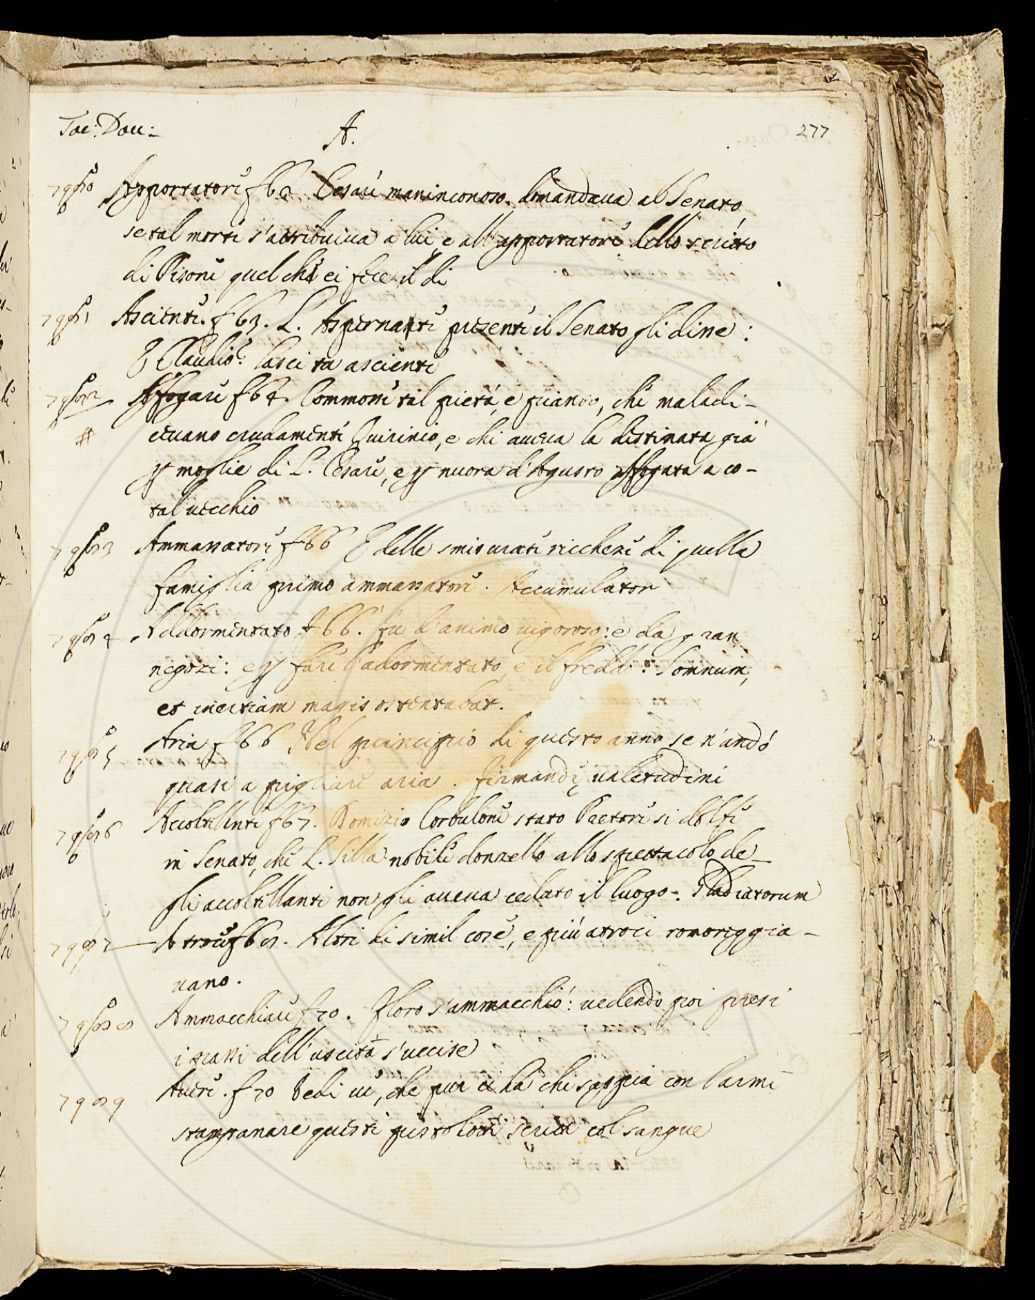 Tac: Dau:
A.
277
Apportatori f 62. Cesare maninconoso. domandava al Senato
se tal morte s'attribuiva a lui e all'apportatore dello scritto
di Pisone quel che ei fece il dì
Ascienti. f 63. L. Aspernanti presente il Senato gli disse:
E Claudio: lasci ta ascienti
Affogare f 64. Commove tal pietà, e pianto, che maladi-
cevano crudamente Quirinio, e chi aveva la destinata già
p moglie di L. Cesare, e p nuora d'Agusto affogata a co-
tal vecchio
Ammassatori f 66 E delle smisurate ricchezze di quella
famiglia primo ammassatore. Accumulator
Addormentato f 66. fu d'animo vigoroso: e da gran
negozi: e p fare l'adormentato, e il freddo: Somnium,
et inertiam magis ostentabat.
Aria f 66 Nel principio di questo anno se n'andò
quasi a pigliare aria. firmandę valetudini
Accoltellanti f 67. Domizio Corbulone stato Pretore si dolse
in Senato, che L. Silla nobile donzello allo spettacolo de-
gli accoltellanti non gli aveva ceduto il luogo: Gladiatorum
Atroci f 69. Altri di simil cose, e più atroci romoreggia-
vano.
Ammacchiare f 70. Floro s'ammacchiò: vedendo poi presi
i passi dell'uscita s'uccise
Avere. f 70 Vedi ve, che pur ci ha chi sappia con l'armi
stampanare questi pistolotti scritti col sangue